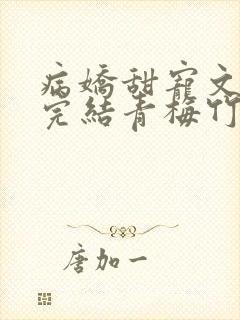 病嬌甜寵文
完結青梅竹
唐加一